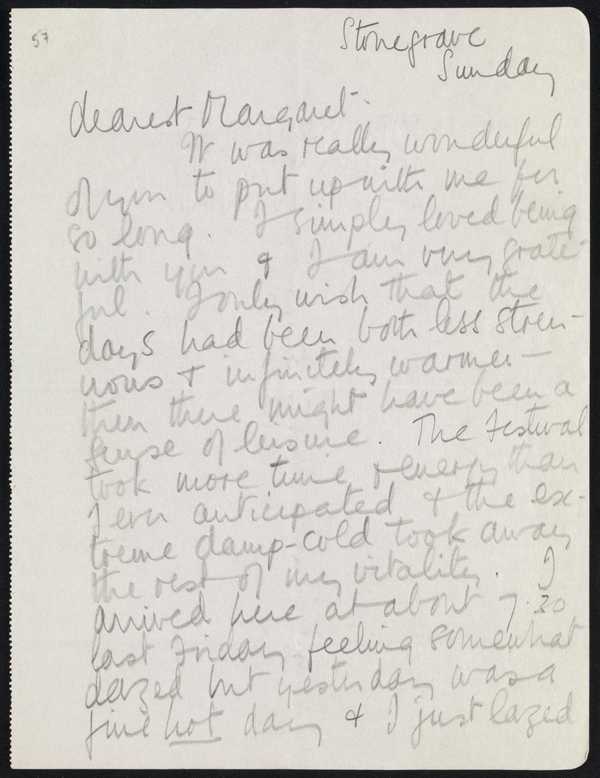 57
Stonegrave
Sunday
dearest Margaret.
It was really wonderful
of you to put up with me for
so long. I simply loved being
with you & I am very grate-
ful. I only wish that the
days had been both less stren-
uous & infinitely warmer –
then there might have been a
sense of leisure. The Festival
took more time & energy than
I ever anticipated & the ex-
treme damp-cold took away
the rest of my vitality. I
arrived here at about 7.30
last Friday feeling somewhat
dazed but yesterday was a
fine hot day & I just lazed